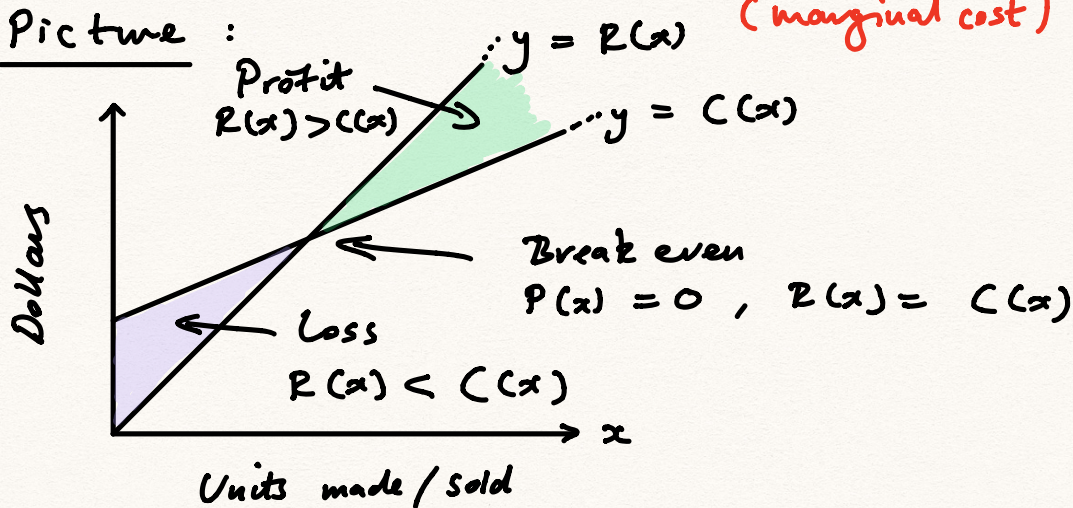 Picture :
(marginal cost)
y = R(x)
Profit
R(x) > C(x)
y = C(x)
Dollars
Break even
P(x) = 0 , R(x) = C(x)
Loss
R(x) < C(x)
x
Units made / sold